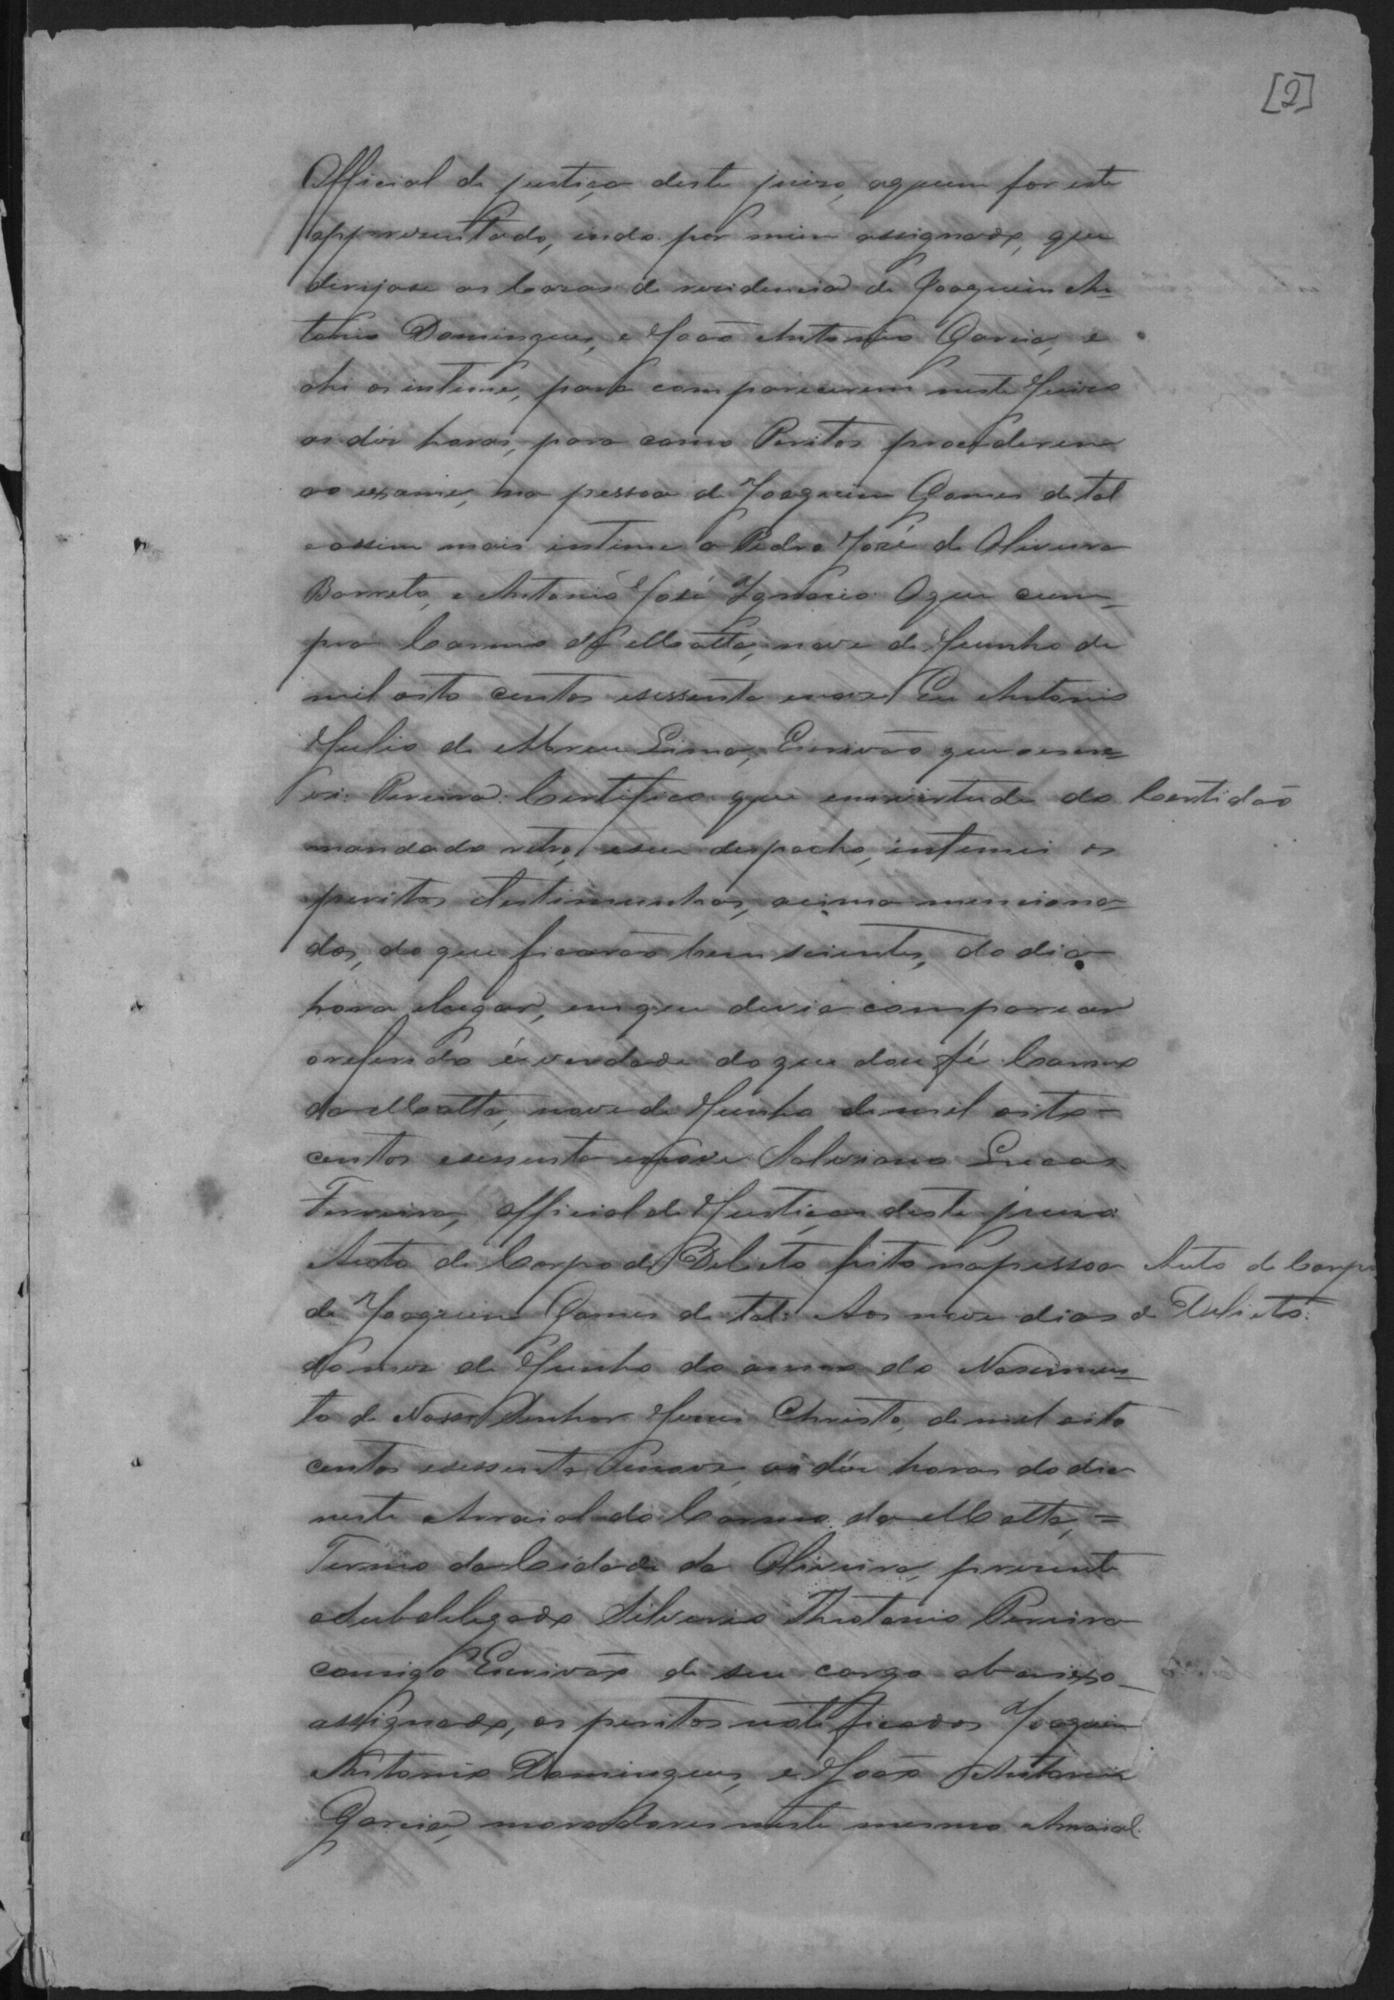 [2]
Official de justiça deste juizo, aquem for este
appresentado, indo por mim assignado, que
dirijase as Cazas de residencia de Joaquim An-
tonio Domingues, e João Antonio Garcia, e
ahi os intime, para comparecerem neste Juizo
as déz horas, para como Peritos procederem
ao exame, na pessoa de Joaquim Gomes de tal
eassim mais intime a Pedro José de Oliveira
Barreto, e Antonio José Ignacio Oque cum-
pra Carmo da Matta, nove de Junho de
mil oito centos esessenta enove Eu Antonio
Julio de Abreu Lima, Escrivão que oescre-
vi. Pereira. Certifico que emvirtude do
Certidão
mandado retro, eseu despacho, intimei os
peritos etestimunhas, acima menciona-
dos, do que ficarão bem scientes, do dia
hora elugar, emque devia comparecer
oreferido éverdade doque dou fé Carmo
da Matta, nove de Junho de mil oito-
centos esessenta enove Salviano Lucas
Ferreira, official de Justiça deste juizo.
Auto de Corpo de Delicto feito napessoa
Auto de Corpo
de Joaquim Gomes de tal. Aos nove dias
de Delicto.
do mez de Junho do anno do Nascimen-
to de Nosso Senhor Jezus Christo, de mil oito
centos esessenta enove, as déz horas do dia
neste Arraial do Carmo da Matta, =
Termo da Cidade da Oliveira, presente
oSubdelegado Silverio Theotonio Pereira
comigo Escrivão de seu cargo abaixo-
assignado, os peritos notificados Joaquim
Antonio Domingues, e João Antonio
Garcia, moradores neste mesmo Arraial.